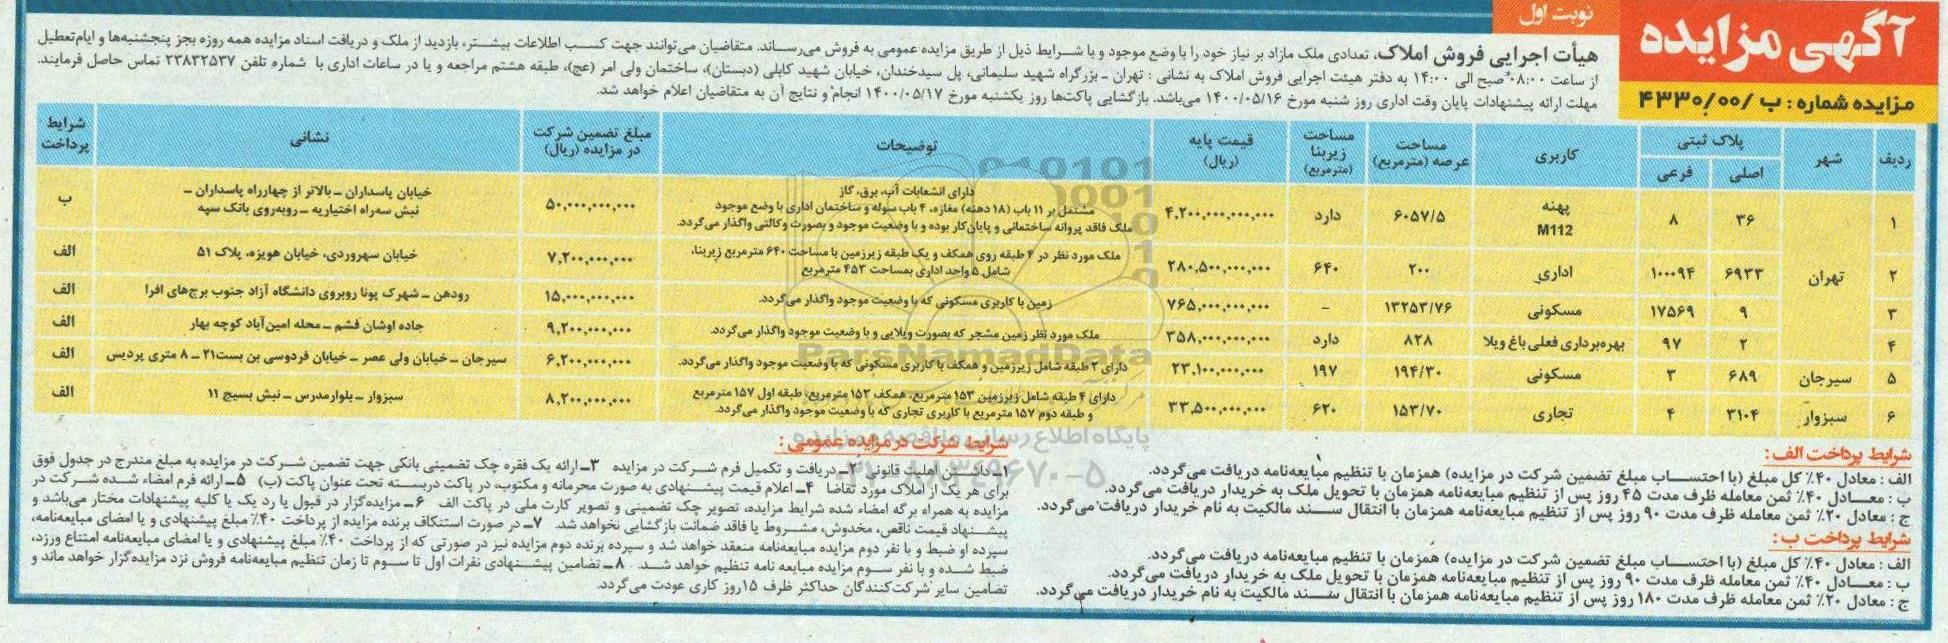 نوبت اول
آگهی مزایده
مزایده شماره : ب /۴۳۳۰/۰۰
هیأت اجرایی فروش املاک، تعدادی ملک مازاد بر نیاز خود را با وضع موجود و با شرایط ذیل از طریق مزایده عمومی به فروش می‌رساند. متقاضیان می‌توانند جهت کسب اطلاعات بیشتر، بازدید از ملک و دریافت اسناد مزایده همه روزه بجز پنجشنبه‌ها و ایام‌تعطیل
از ساعت ۰۸:۰۰ صبح الی ۱۴:۰۰ به دفتر هیئت اجرایی فروش املاک به نشانی : تهران ـ بزرگراه شهید سلیمانی، پل سیدخندان، خیابان شهید کابلی (دبستان)، ساختمان ولی امر (عج)، طبقه هشتم مراجعه و یا در ساعات اداری با شماره تلفن ۲۳۸۳۲۵۳۷ تماس حاصل فرمایند.
مهلت ارائه پیشنهادات پایان وقت اداری روز شنبه مورخ ۱۴۰۰/۰۵/۱۶ می‌باشد. بازگشایی پاکت‌ها روز یکشنبه مورخ ۱۴۰۰/۰۵/۱۷ انجام و نتایج آن به متقاضیان اعلام خواهد شد.
ردیف شهر پلاک ثبتی اصلی فرعی کاربری مساحت عرصه (مترمربع) مساحت زیربنا (مترمربع) قیمت پایه (ریال) توضیحات مبلغ تضمین شرکت در مزایده (ریال) نشانی شرایط پرداخت
۱ تهران ۳۶ ۸ پهنه M112 ۶۰۵۷/۵ دارد ۴,۲۰۰,۰۰۰,۰۰۰,۰۰۰
دارای انشعابات آب، برق، گاز
مشتمل بر ۱۱ باب (۱۸ دهنه) مغازه، ۴ باب سوله و ساختمان اداری با وضع موجود
ملک فاقد پروانه ساختمانی و پایان‌کار بوده و با وضعیت موجود و بصورت وکالتی واگذار می‌گردد.
۵۰,۰۰۰,۰۰۰,۰۰۰
خیابان پاسداران ـ بالاتر از چهارراه پاسداران ـ
نبش سه‌راه اختیاریه ـ روبه‌روی بانک سپه
ب
۲ ۶۹۳۳ ۱۰۰۰۹۴ اداری ۲۰۰ ۶۴۰ ۲۸۰,۵۰۰,۰۰۰,۰۰۰
ملک مورد نظر در ۴ طبقه روی همکف و یک طبقه زیرزمین با مساحت ۶۴۰ مترمربع زیربنا،
شامل ۵ واحد اداری بمساحت ۴۵۳ مترمربع
۷,۲۰۰,۰۰۰,۰۰۰ خیابان سهروردی، خیابان هویزه، پلاک ۵۱ الف
۳ ۹ ۱۷۵۶۹ مسکونی ۱۳۲۵۳/۷۶ – ۷۶۵,۰۰۰,۰۰۰,۰۰۰ زمین با کاربری مسکونی که با وضعیت موجود واگذار می‌گردد. ۱۵,۰۰۰,۰۰۰,۰۰۰ رودهن ـ شهرک پونا روبروی دانشگاه آزاد جنوب برج‌های افرا الف
۴ ۲ ۹۷ بهره‌برداری فعلی باغ ویلا ۸۲۸ دارد ۳۵۸,۰۰۰,۰۰۰,۰۰۰ ملک مورد نظر زمین مشجر که بصورت ویلایی و با وضعیت موجود واگذار می‌گردد. ۹,۲۰۰,۰۰۰,۰۰۰ جاده اوشان فشم ـ محله امین‌آباد کوچه بهار الف
۵ سیرجان ۶۸۹ ۳ مسکونی ۱۹۴/۳۰ ۱۹۷ ۲۳,۱۰۰,۰۰۰,۰۰۰ دارای ۲ طبقه شامل زیرزمین و همکف با کاربری مسکونی که با وضعیت موجود واگذار می‌گردد. ۶,۲۰۰,۰۰۰,۰۰۰ سیرجان ـ خیابان ولی عصر ـ خیابان فردوسی بن بست۲۱ ـ ۸ متری پردیس الف
۶ سبزوار ۳۱۰۴ ۴ تجاری ۱۵۳/۷۰ ۶۲۰ ۳۳,۵۰۰,۰۰۰,۰۰۰
دارای ۴ طبقه شامل زیرزمین ۱۵۳ مترمربع، همکف ۱۵۳ مترمربع، طبقه اول ۱۵۷ مترمربع
و طبقه دوم ۱۵۷ مترمربع با کاربری تجاری که با وضعیت موجود واگذار می‌گردد.
۸,۲۰۰,۰۰۰,۰۰۰ سبزوار ـ بلوارمدرس ـ نبش بسیج ۱۱ الف
شرایط پرداخت الف :
الف : معادل ۴۰٪ کل مبلغ (با احتساب مبلغ تضمین شرکت در مزایده) همزمان با تنظیم مبایعه‌نامه دریافت می‌گردد.
ب : معادل ۴۰٪ ثمن معامله ظرف مدت ۴۵ روز پس از تنظیم مبایعه‌نامه همزمان با تحویل ملک به خریدار دریافت می‌گردد.
ج : معادل ۲۰٪ ثمن معامله ظرف مدت ۹۰ روز پس از تنظیم مبایعه‌نامه همزمان با انتقال سند مالکیت به نام خریدار دریافت می‌گردد.
شرایط پرداخت ب :
الف : معادل ۴۰٪ کل مبلغ (با احتساب مبلغ تضمین شرکت در مزایده) همزمان با تنظیم مبایعه‌نامه دریافت می‌گردد.
ب : معادل ۴۰٪ ثمن معامله ظرف مدت ۹۰ روز پس از تنظیم مبایعه‌نامه همزمان با تحویل ملک به خریدار دریافت می‌گردد.
ج : معادل ۲۰٪ ثمن معامله ظرف مدت ۱۸۰ روز پس از تنظیم مبایعه‌نامه همزمان با انتقال سند مالکیت به نام خریدار دریافت می‌گردد.
شرایط شرکت در مزایده عمومی :
۱ـ داشتن اهلیت قانونی ۲ـ دریافت و تکمیل فرم شرکت در مزایده ۳ـ ارائه یک فقره چک تضمینی بانکی جهت تضمین شرکت در مزایده به مبلغ مندرج در جدول فوق
برای هر یک از املاک مورد تقاضا ۴ـ اعلام قیمت پیشنهادی به صورت محرمانه و مکتوب، در پاکت دربسته تحت عنوان پاکت (ب) ۵ـ ارائه فرم امضاء شده شرکت در
مزایده به همراه برگه امضاء شده شرایط مزایده، تصویر چک تضمینی و تصویر کارت ملی در پاکت الف ۶ـ مزایده‌گزار در قبول یا رد یک یا کلیه پیشنهادات مختار می‌باشد و
پیشنهاد قیمت ناقص، مخدوش، مشروط یا فاقد ضمانت بازگشایی نخواهد شد. ۷ـ در صورت استنکاف برنده مزایده از پرداخت ۴۰٪ مبلغ پیشنهادی و یا امضای مبایعه‌نامه،
سپرده او ضبط و با نفر دوم مزایده مبایعه‌نامه منعقد خواهد شد و سپرده برنده دوم مزایده نیز در صورتی که از پرداخت ۴۰٪ مبلغ پیشنهادی و یا امضای مبایعه‌نامه امتناع ورزد،
ضبط شده و با نفر سوم مزایده مبایعه نامه تنظیم خواهد شد. ۸ـ تضامین پیشنهادی نفرات اول تا سوم تا زمان تنظیم مبایعه‌نامه فروش نزد مزایده‌گزار خواهد ماند و
تضامین سایر شرکت‌کنندگان حداکثر ظرف ۱۵روز کاری عودت می‌گردد.
ParsNamadData
پایگاه اطلاع رسانی مناقصه و مزایده
۰۲۱-۸۸۳۴۹۶۷۰-۵